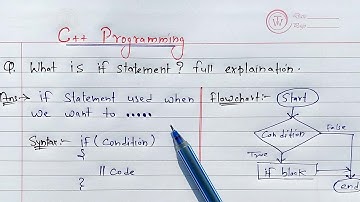 C++ Programming
Q. What is if statement? full explaination.
Ans→ if statement used when
we want to .....
Syntax:- if (Condition)
{
// Code
}
Flowchart:-
Start
Condition
False
True
If block
end